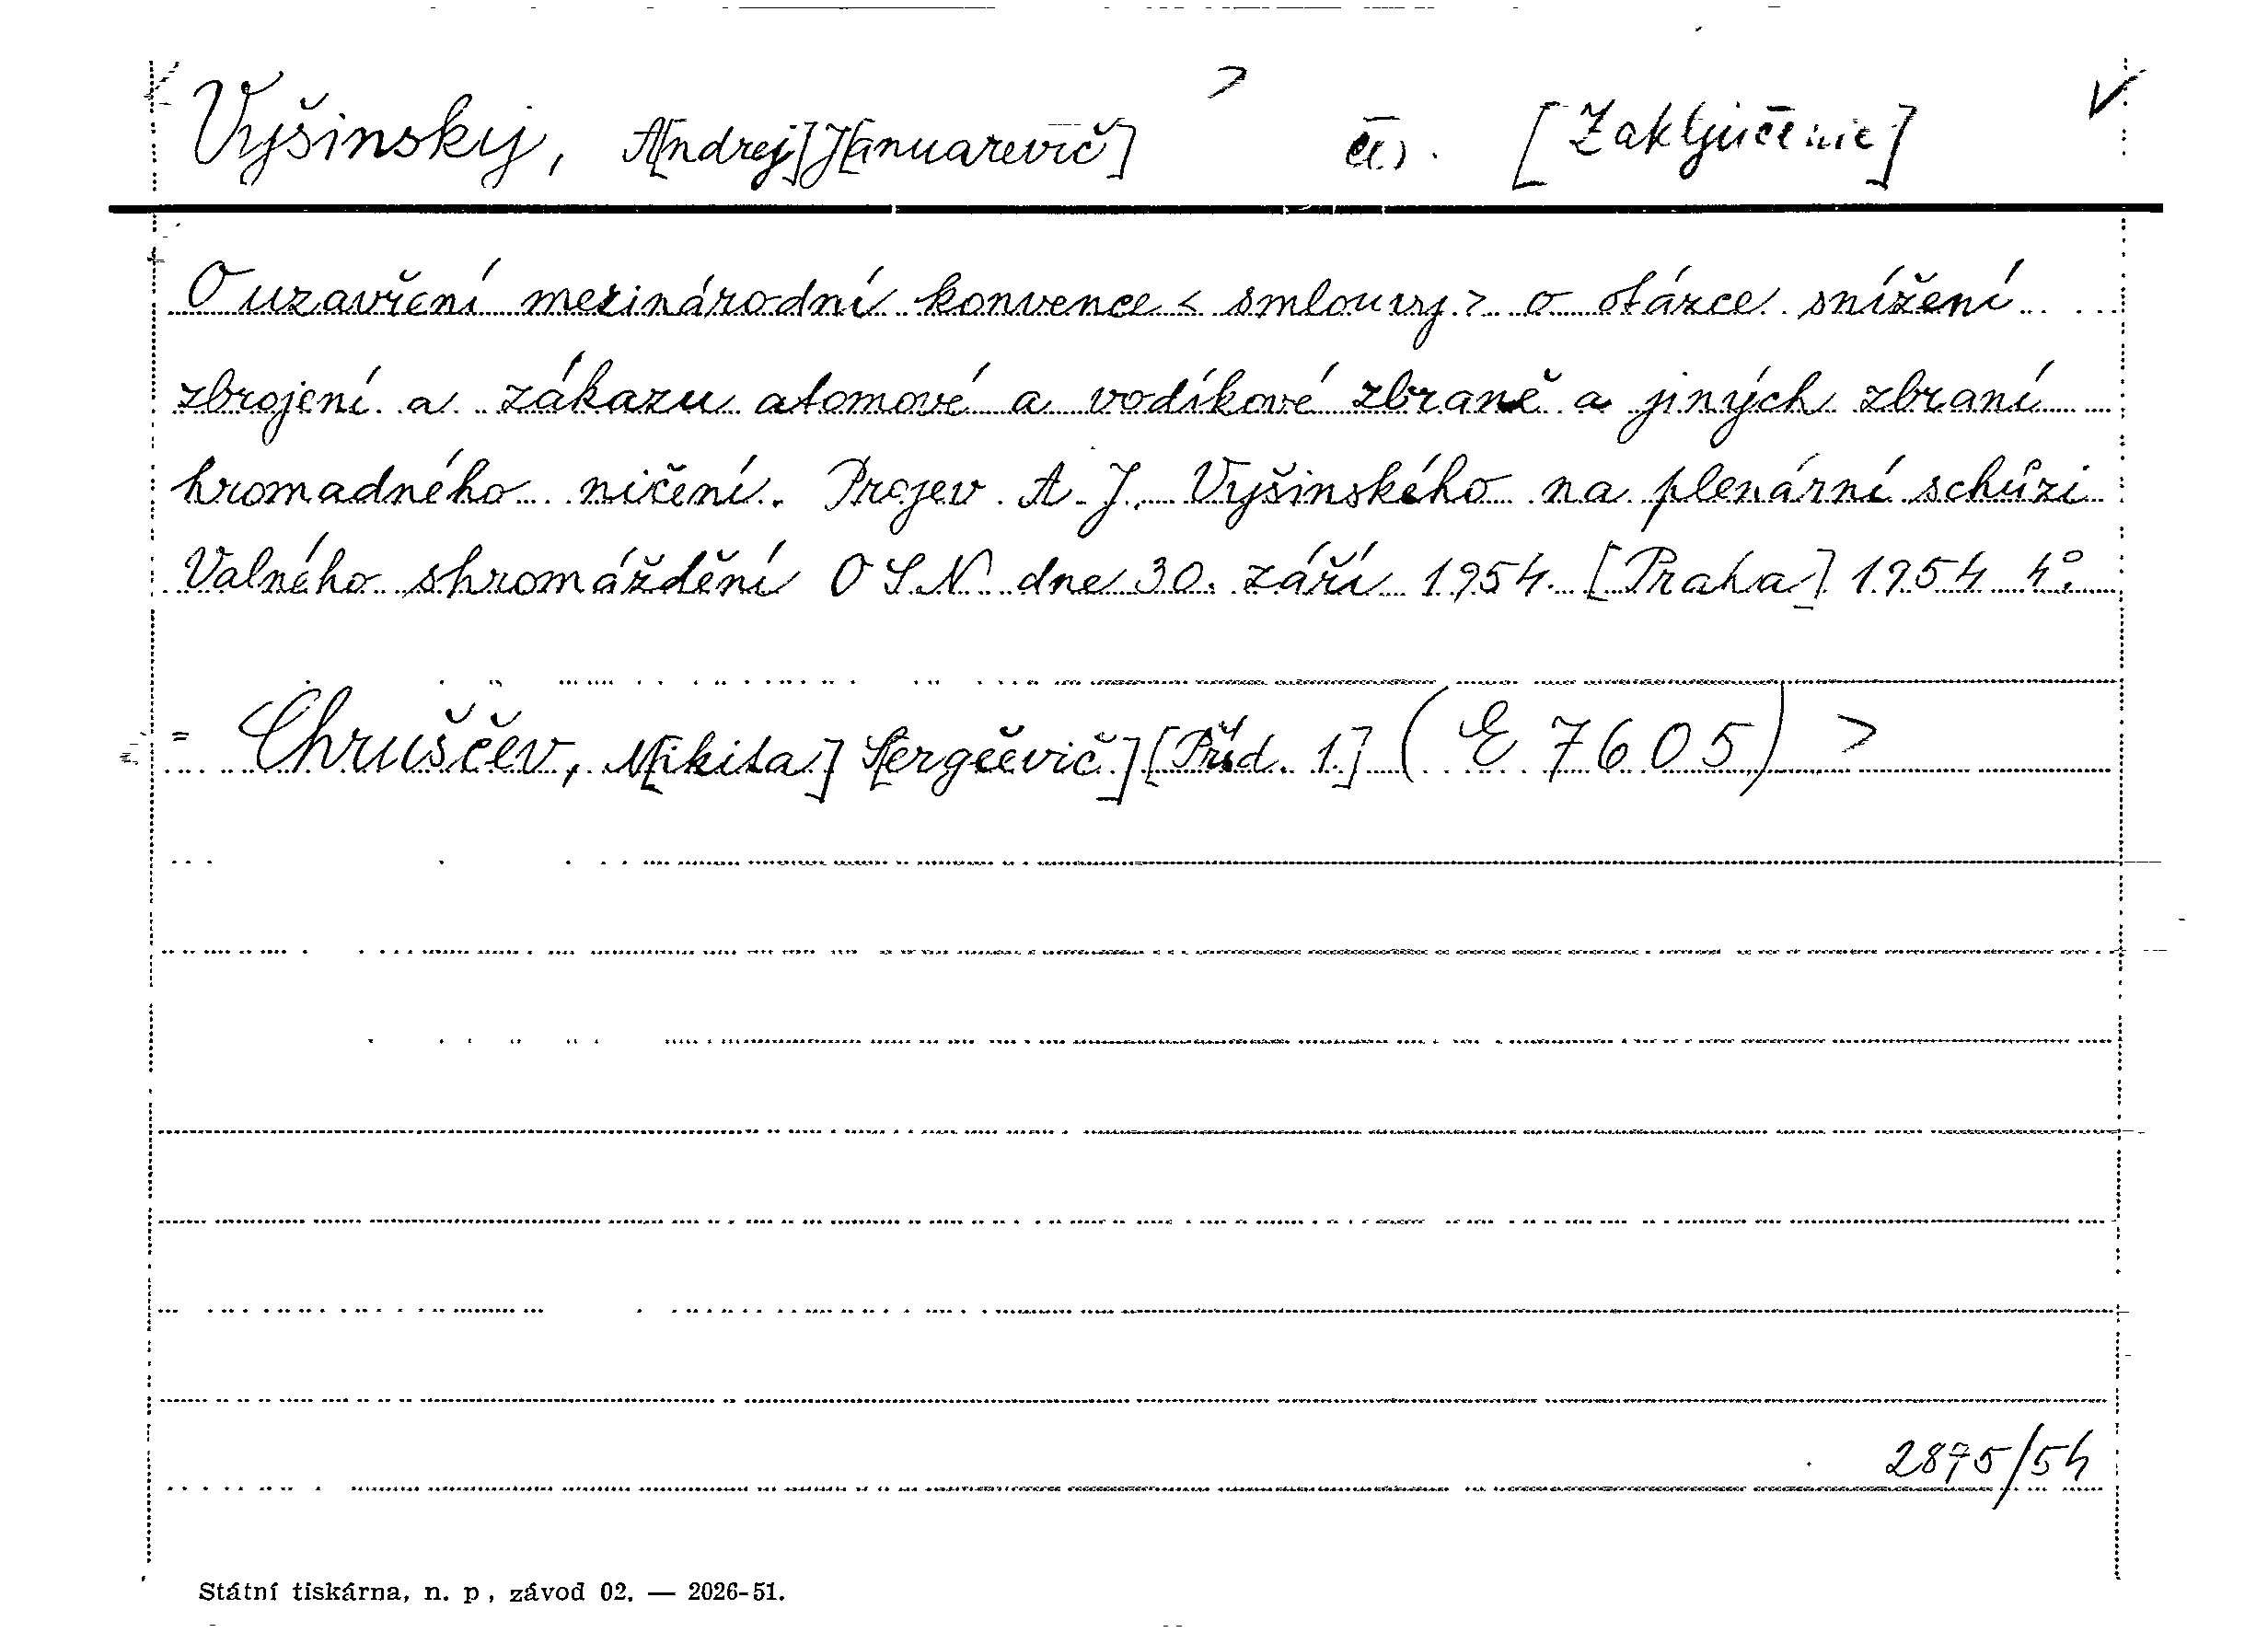 Vyšinskij, A[ndrej] J[anuarevič] > čes. [Zaključenie] V
O uzavření mezinárodní konvence < smlouvy > o otázce snížení
zbrojení a zákazu atomové a vodíkové zbraně a jiných zbraní
hromadného ničení. Projev A. J. Vyšinského na plenární schůzi
Valného shromáždění OSN dne 30. září 1954. [Praha] 1954 4°.
= Chruščev, N[ikita] S[ergěevič] [Příd. 1.] (E 7605) >
2895/54
Státní tiskárna, n. p, závod 02. — 2026-51.